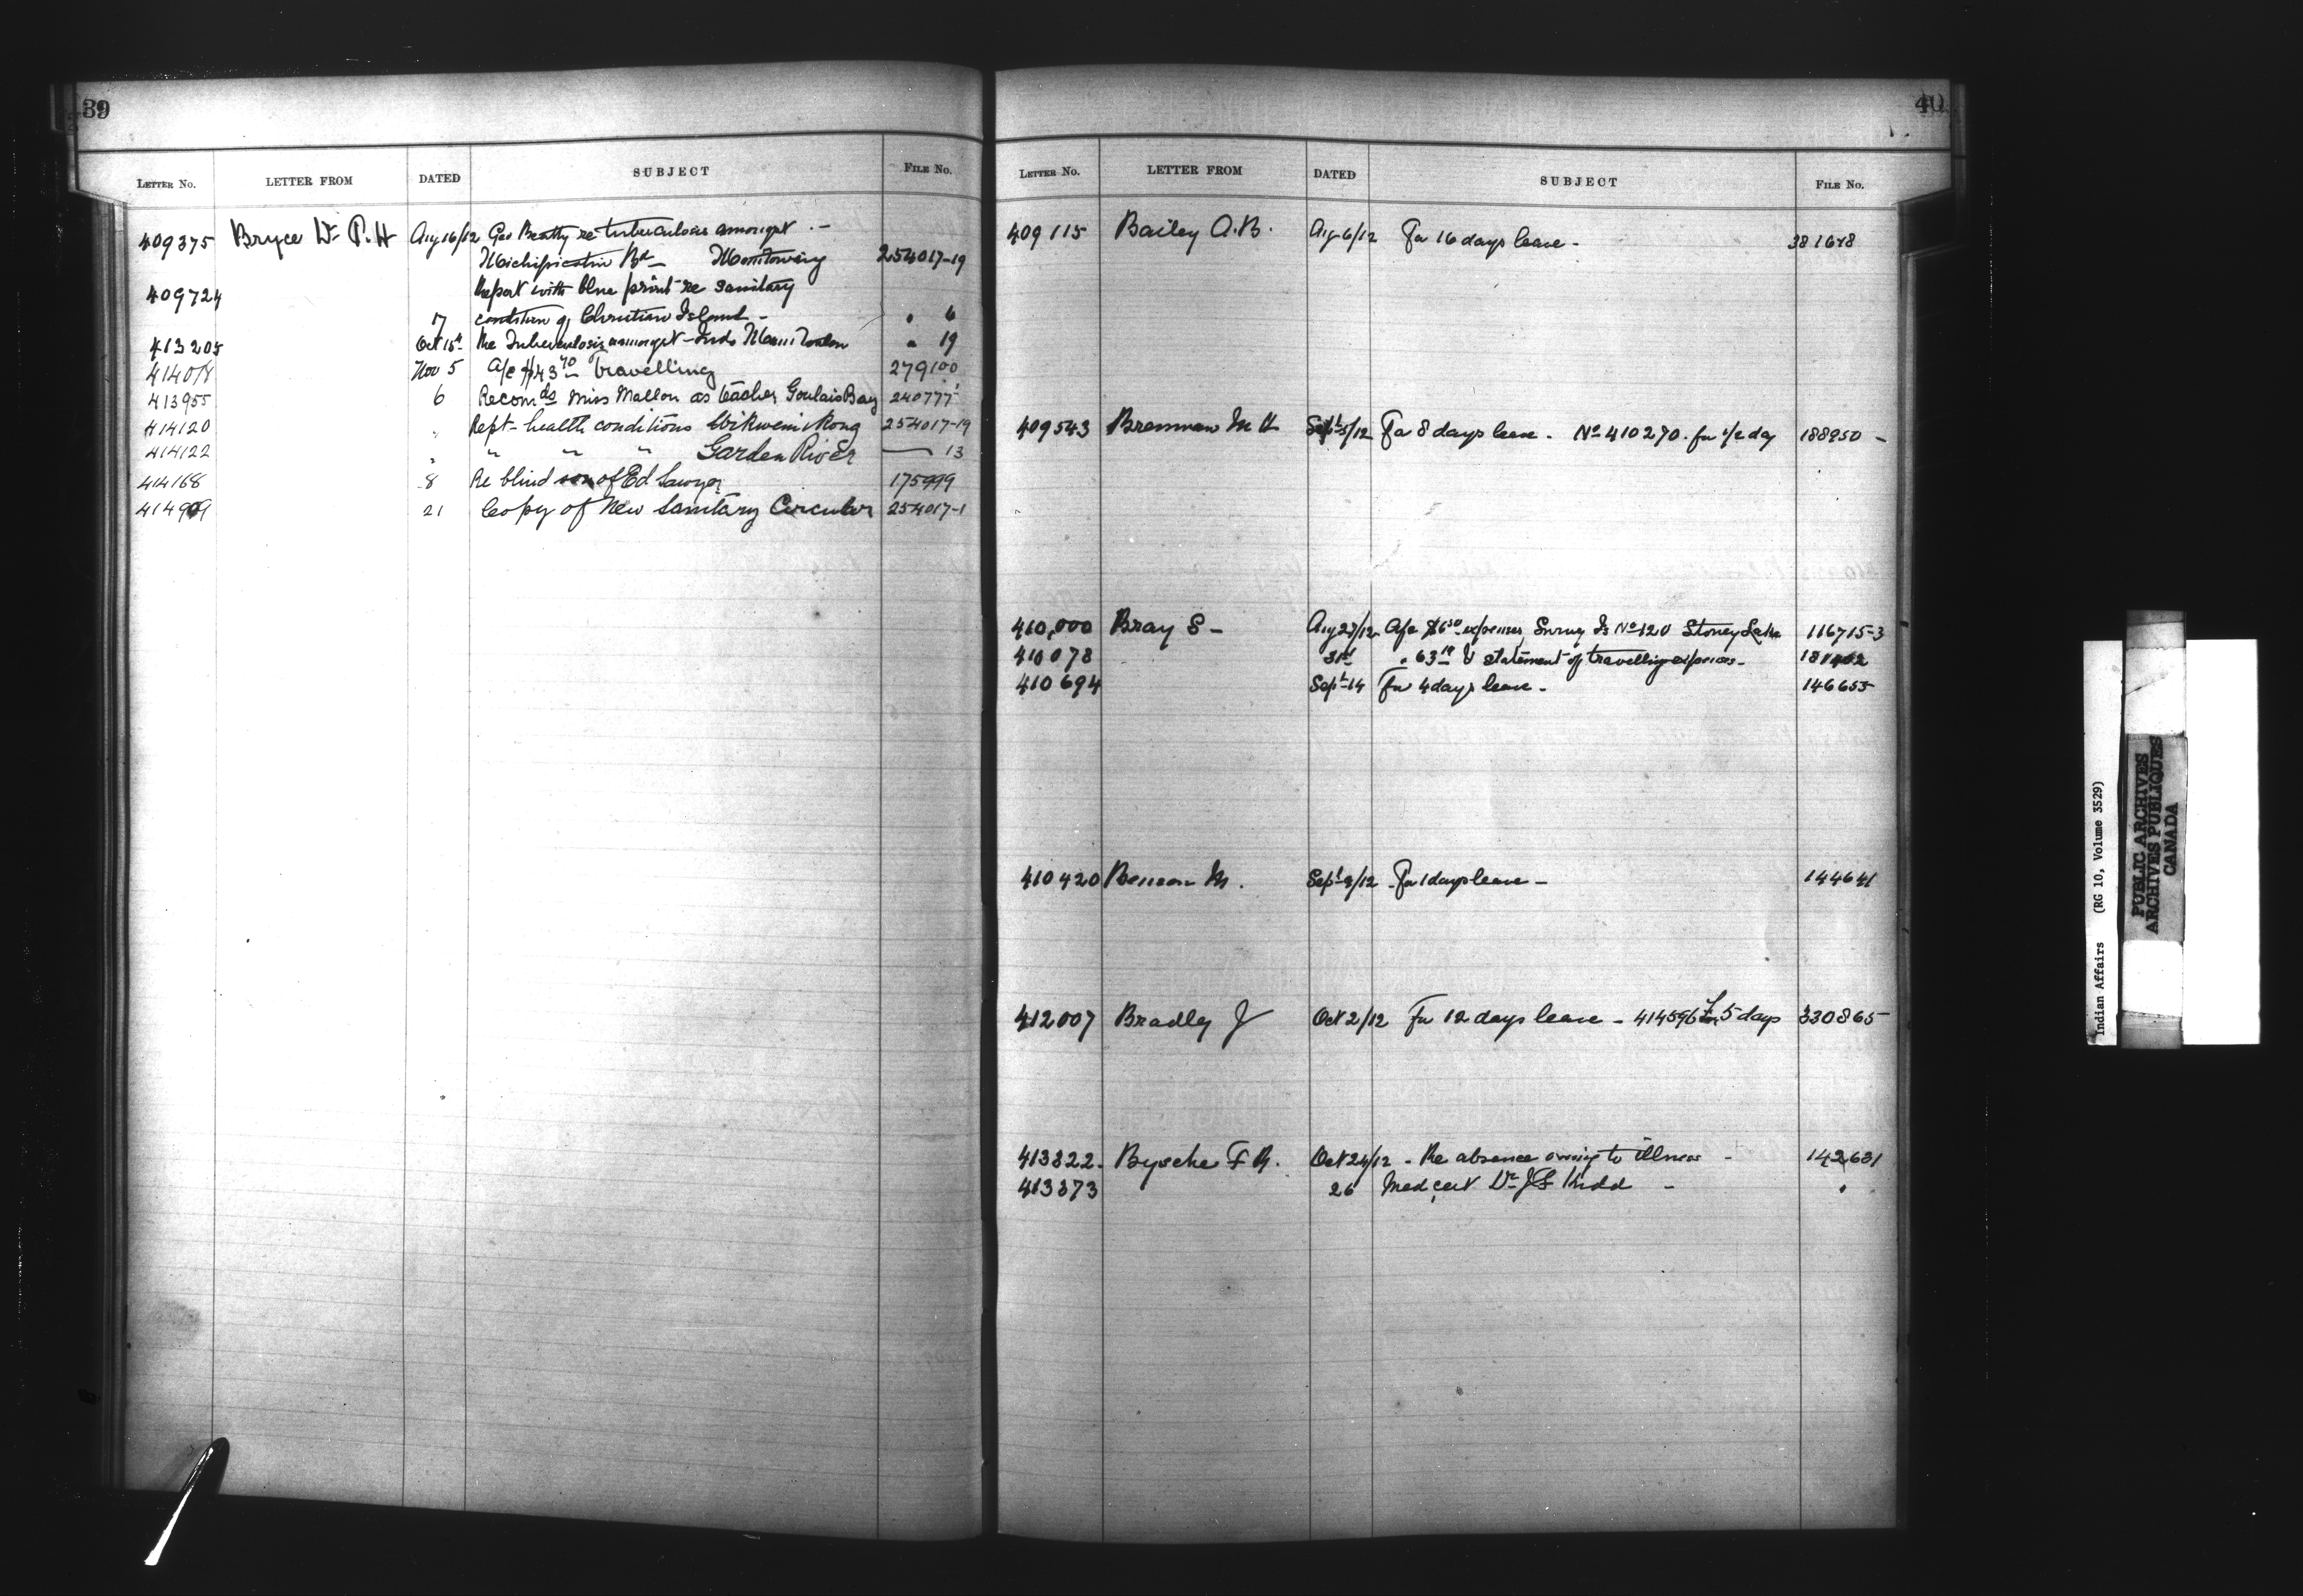 39
LETTER NO. LETTER FROM DATED SUBJECT FILE No.
409375 Bryce Dr P.H Aug 16/12 Geo Beatty re tuberculosis amongst -
Michipicoten Bd - 254017-19
409724 Report with blue print re sanitary
17 condition of Christian Island - " 6
413205 Oct 15th Re Tuberculosis amongst Inds " 19
414078 Nov 5 A/c $43 70 Travelling 279100
413955 6 Recomds Miss Mallon as teacher Goulais Bay 240777
414120 " Rept - health conditions Wikwemikong 254017-19
414122 " " " " Garden River — 13
414168 8 Re blind son of Ed Sawyer 175999
414909 21 Copy of New Sanitary Circular 254017-1
40
LETTER NO. LETTER FROM DATED SUBJECT FILE No.
409115 Bailey A.B. Aug 6/12 For 16 days leave - 381678
409543 Brennan M H Sept 5/12 For 8 days leave - No 410270 for 1/2 day 188950 -
410,000 Bray S - Aug 27/12 A/c $6 50 expenses Survey Is No 120 Stoney Lake 116715-3
410078 31st " 63 & statement of travelling expenses -
410694 Sept 14 For 4 days leave - 146655
410420 Benson M. Sept 9/12 - For 1 days leave - 144641
412007 Bradley J Oct 2/12 For 12 days leave - 414596 for 5 days 330865
413822 - Byshe F R. Oct 24/12 - Re absence owing to illness - 142631
413873 26 Med cert Dr J F Kidd - "
Indian Affairs (RG 10, Volume 3529)
PUBLIC ARCHIVES
ARCHIVES PUBLIQUES
CANADA